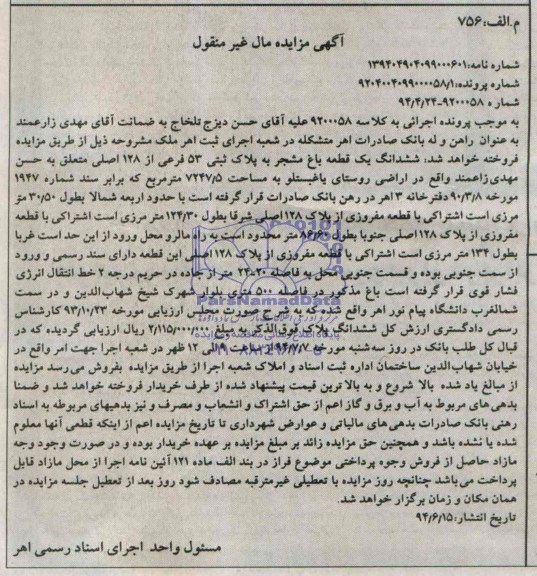 م.الف:۷۵۶
آگهی مزایده مال غیر منقول
شماره نامه:۱۳۹۴۰۴۹۰۴۰۹۹۰۰۰۶۰۱
شماره پرونده:۹۲۰۴۰۰۴۰۹۹۰۰۰۰۵۸/۱
شماره ۹۲۰۰۰۵۸-۹۴/۴/۲۴
به موجب پرونده اجرائی به کلاسه ۹۲۰۰۰۵۸ علیه آقای حسن دیزج تلخاج به ضمانت آقای مهدی زارعمند
به عنوان راهن و له بانک صادرات اهر متشکله در شعبه اجرای ثبت اهر ملک مشروحه ذیل از طریق مزایده
فروخته خواهد شد: ششدانگ یک قطعه باغ مشجر به پلاک ثبتی ۵۳ فرعی از ۱۲۸ اصلی متعلق به حسن
مهدی زاعمند واقع در اراضی روستای باغبستلو به مساحت ۷۲۴۷/۵ مترمربع که برابر سند شماره ۱۹۴۷
مورخه ۹۰/۳/۸ دفترخانه ۳ اهر در رهن بانک صادرات قرار گرفته است با حدود اربعه شمالا بطول ۳۰/۵۰ متر
مرزی است اشتراکی با قطعه مفروزی از پلاک ۱۲۸ اصلی شرقا بطول ۱۲۴/۳۰ متر مرزی است اشتراکی با قطعه
مفروزی از پلاک ۱۲۸ اصلی جنوبا بطول ۸۶/۶۰ متر محدود است به راه مالرو محل ورود از این حد است غربا
بطول ۱۳۴ متر مرزی است اشتراکی با قطعه مفروزی از پلاک ۱۲۸ اصلی این قطعه دارای سند رسمی و ورود
از سمت جنوبی بوده و قسمت جنوبی محل به فاصله ۲۰-۲۴ متر از جاده در حریم درجه ۲ خط انتقال انرژی
فشار قوی قرار گرفته است باغ مذکور در فاصله ۵۰۰ متری بلوار شهرک شیخ شهاب‌الدین و در سمت
شمالغرب دانشگاه پیام نور اهر واقع شده که به شرح صورت مجلس ارزیابی مورخه ۹۳/۱۰/۲۳ کارشناس
رسمی دادگستری ارزش کل ششدانگ پلاک فوق الذکر به مبلغ ۲/۱۱۵/۰۰۰/۰۰۰ ریال ارزیابی گردیده که در
قبال کل طلب بانک در روز سه‌شنبه مورخه ۹۴/۷/۷ از ساعت ۹ الی ۱۲ ظهر در شعبه اجرا جهت امر واقع در
خیابان شهاب‌الدین ساختمان اداره ثبت اسناد و املاک شعبه اجرا از طریق مزایده بفروش می‌رسد مزایده
از مبالغ یاد شده بالا شروع و به بالا ترین قیمت پیشنهاد شده از طرف خریدار فروخته خواهد شد و ضمنا
بدهی‌های مربوط به آب و برق و گاز اعم از حق اشتراک و انشعاب و مصرف و نیز بدهیهای مربوطه به اسناد
رهنی بانک صادرات بدهی‌های مالیاتی و عوارض شهرداری تا تاریخ مزایده اعم از اینکه قطعی آنها معلوم
شده یا نشده باشد و همچنین حق مزایده زائد بر مبلغ مزایده بر عهده خریدار بوده و در صورت وجود وجه
مازاد حاصل از فروش وجوه پرداختی موضوع فراز در بند الف ماده ۱۲۱ آئین نامه اجرا از محل مازاد قابل
پرداخت می‌باشد چنانچه روز مزایده با تعطیلی غیرمترقبه مصادف شود روز بعد از تعطیل جلسه مزایده در
همان مکان و زمان برگزار خواهد شد.
تاریخ انتشار: ۹۴/۶/۱۵
مسئول واحد اجرای اسناد رسمی اهر
ParsNamadData